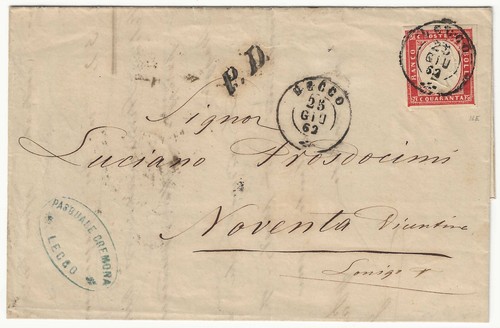 P.D.
LECCO
25
GIU
62
LECCO
25
GIU
62
FRANCO
POSTE
BOLLO
C.QUARANTA
Signor
Luciano Prosdocimi
Noventa Vicentina
Lonigo
PASQUALE CREMONA
LECCO